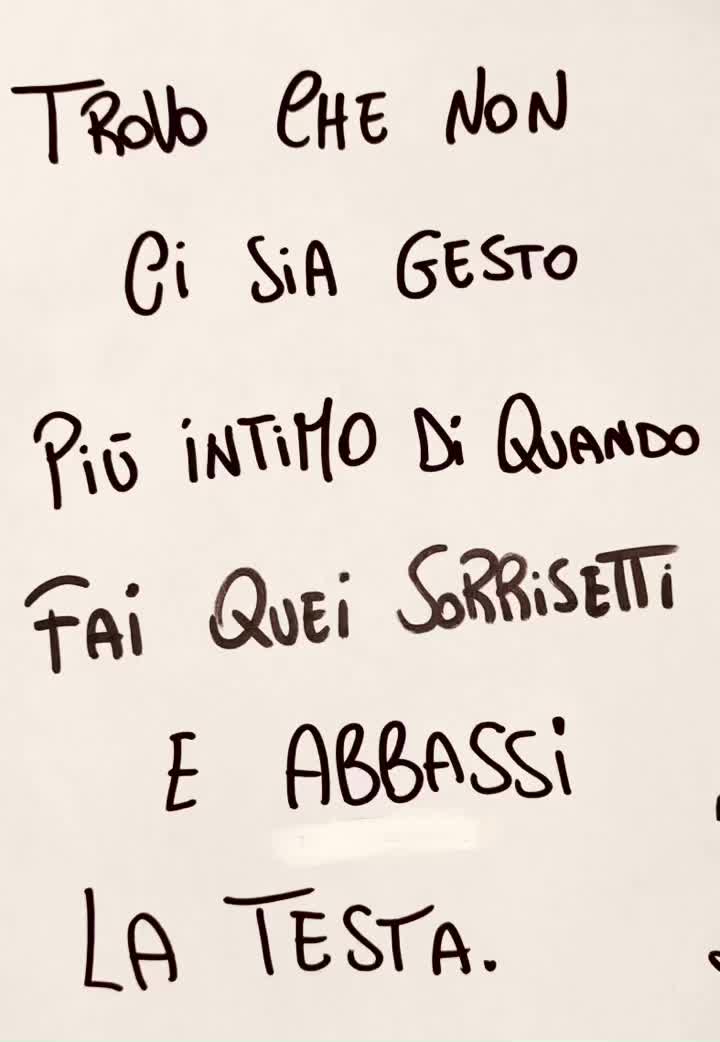 TROVO CHE NON
Ci SiA GESTO
PiÙ iNTiMO Di QUANDO
FAi QUEi SORRiSETTi
E ABBASSi
LA TESTA.